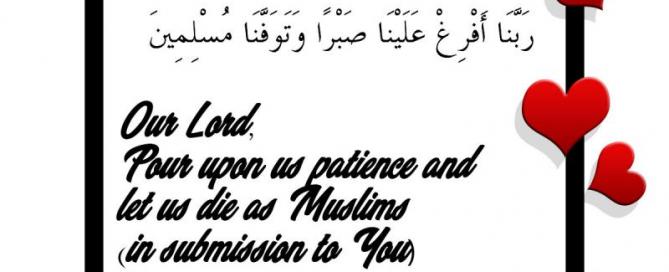 رَبَّنَا أَفْرِغْ عَلَيْنَا صَبْرًا وَتَوَفَّنَا مُسْلِمِينَ
Our Lord,
Pour upon us patience and
let us die as Muslims
(in submission to You)